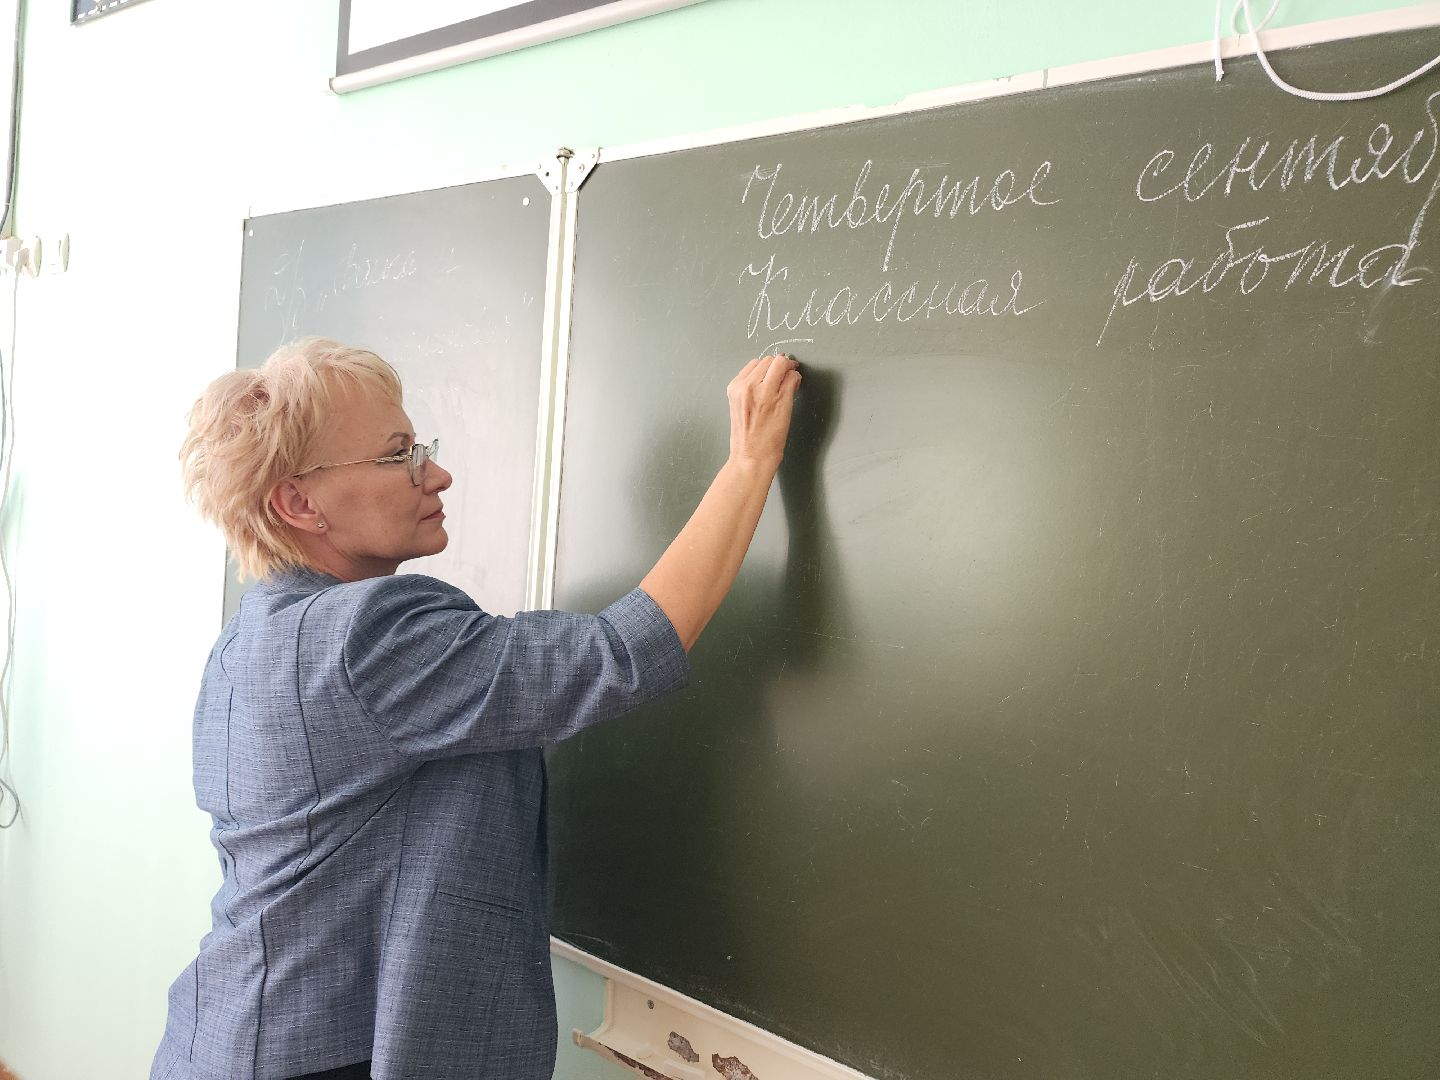 Четвертое сентяб
Классная работа